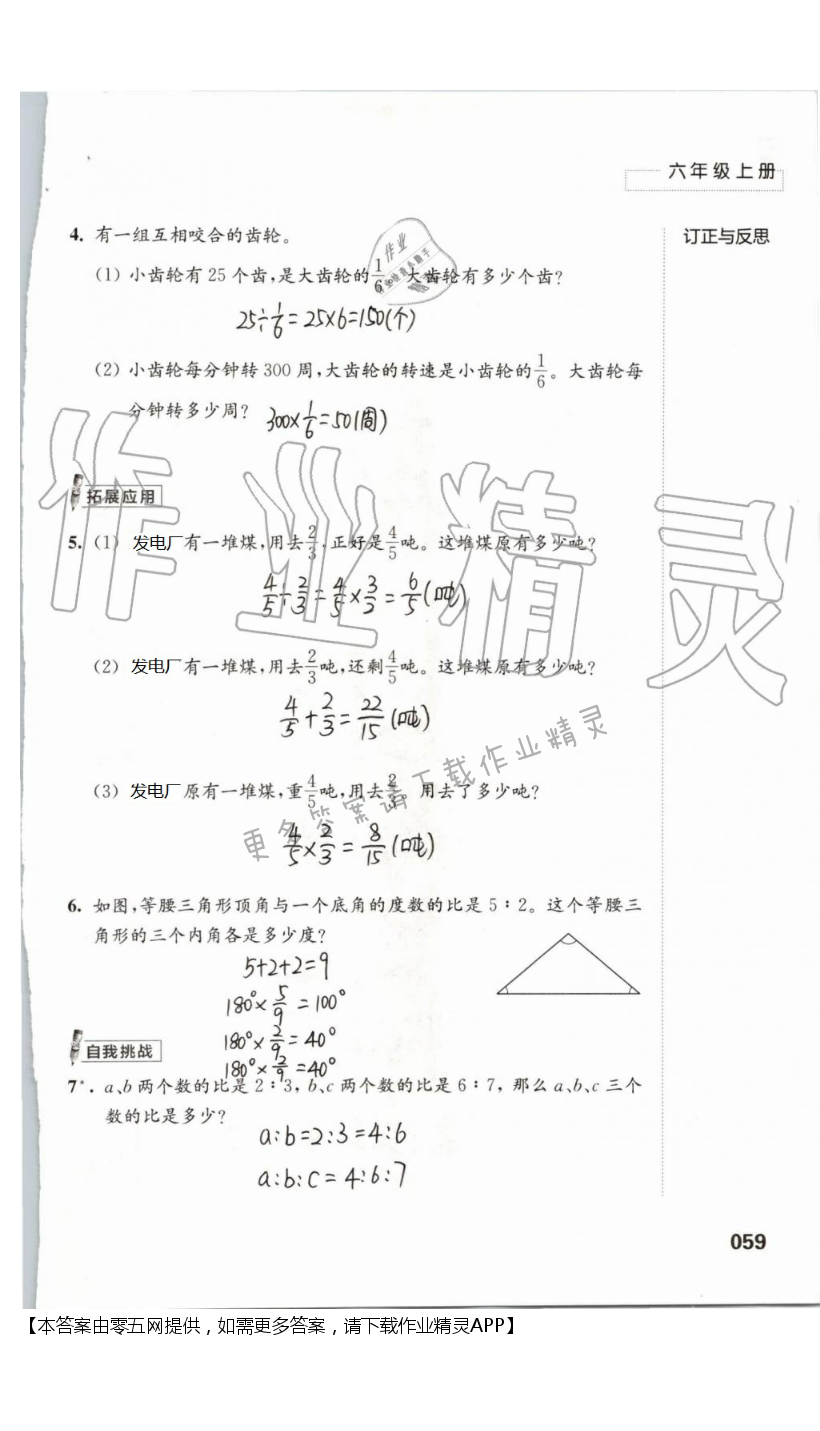 六年级上册
订正与反思
4. 有一组互相咬合的齿轮。
(1) 小齿轮有 25 个齿,是大齿轮的1/6。大齿轮有多少个齿?
25÷1/6=25×6=150(个)
(2) 小齿轮每分钟转 300 周,大齿轮的转速是小齿轮的1/6。大齿轮每
分钟转多少周?
300×1/6=50(周)
拓展应用
5. (1) 发电厂有一堆煤,用去2/3,正好是4/5吨。这堆煤原有多少吨?
4/5÷2/3=4/5×3/2=6/5(吨)
(2) 发电厂有一堆煤,用去2/3吨,还剩4/5吨。这堆煤原有多少吨?
4/5+2/3=22/15(吨)
(3) 发电厂原有一堆煤,重4/5吨,用去2/3。用去了多少吨?
4/5×2/3=8/15(吨)
6. 如图,等腰三角形顶角与一个底角的度数的比是 5∶2。这个等腰三
角形的三个内角各是多少度?
5+2+2=9
180°×5/9=100°
180°×2/9=40°
180°×2/9=40°
自我挑战
7*. a、b 两个数的比是 2∶3, b、c 两个数的比是 6∶7, 那么 a、b、c 三个
数的比是多少?
a:b=2:3=4:6
a:b:c=4:6:7
059
作业精灵
更多答案请下载作业精灵
【本答案由零五网提供，如需更多答案，请下载作业精灵APP】